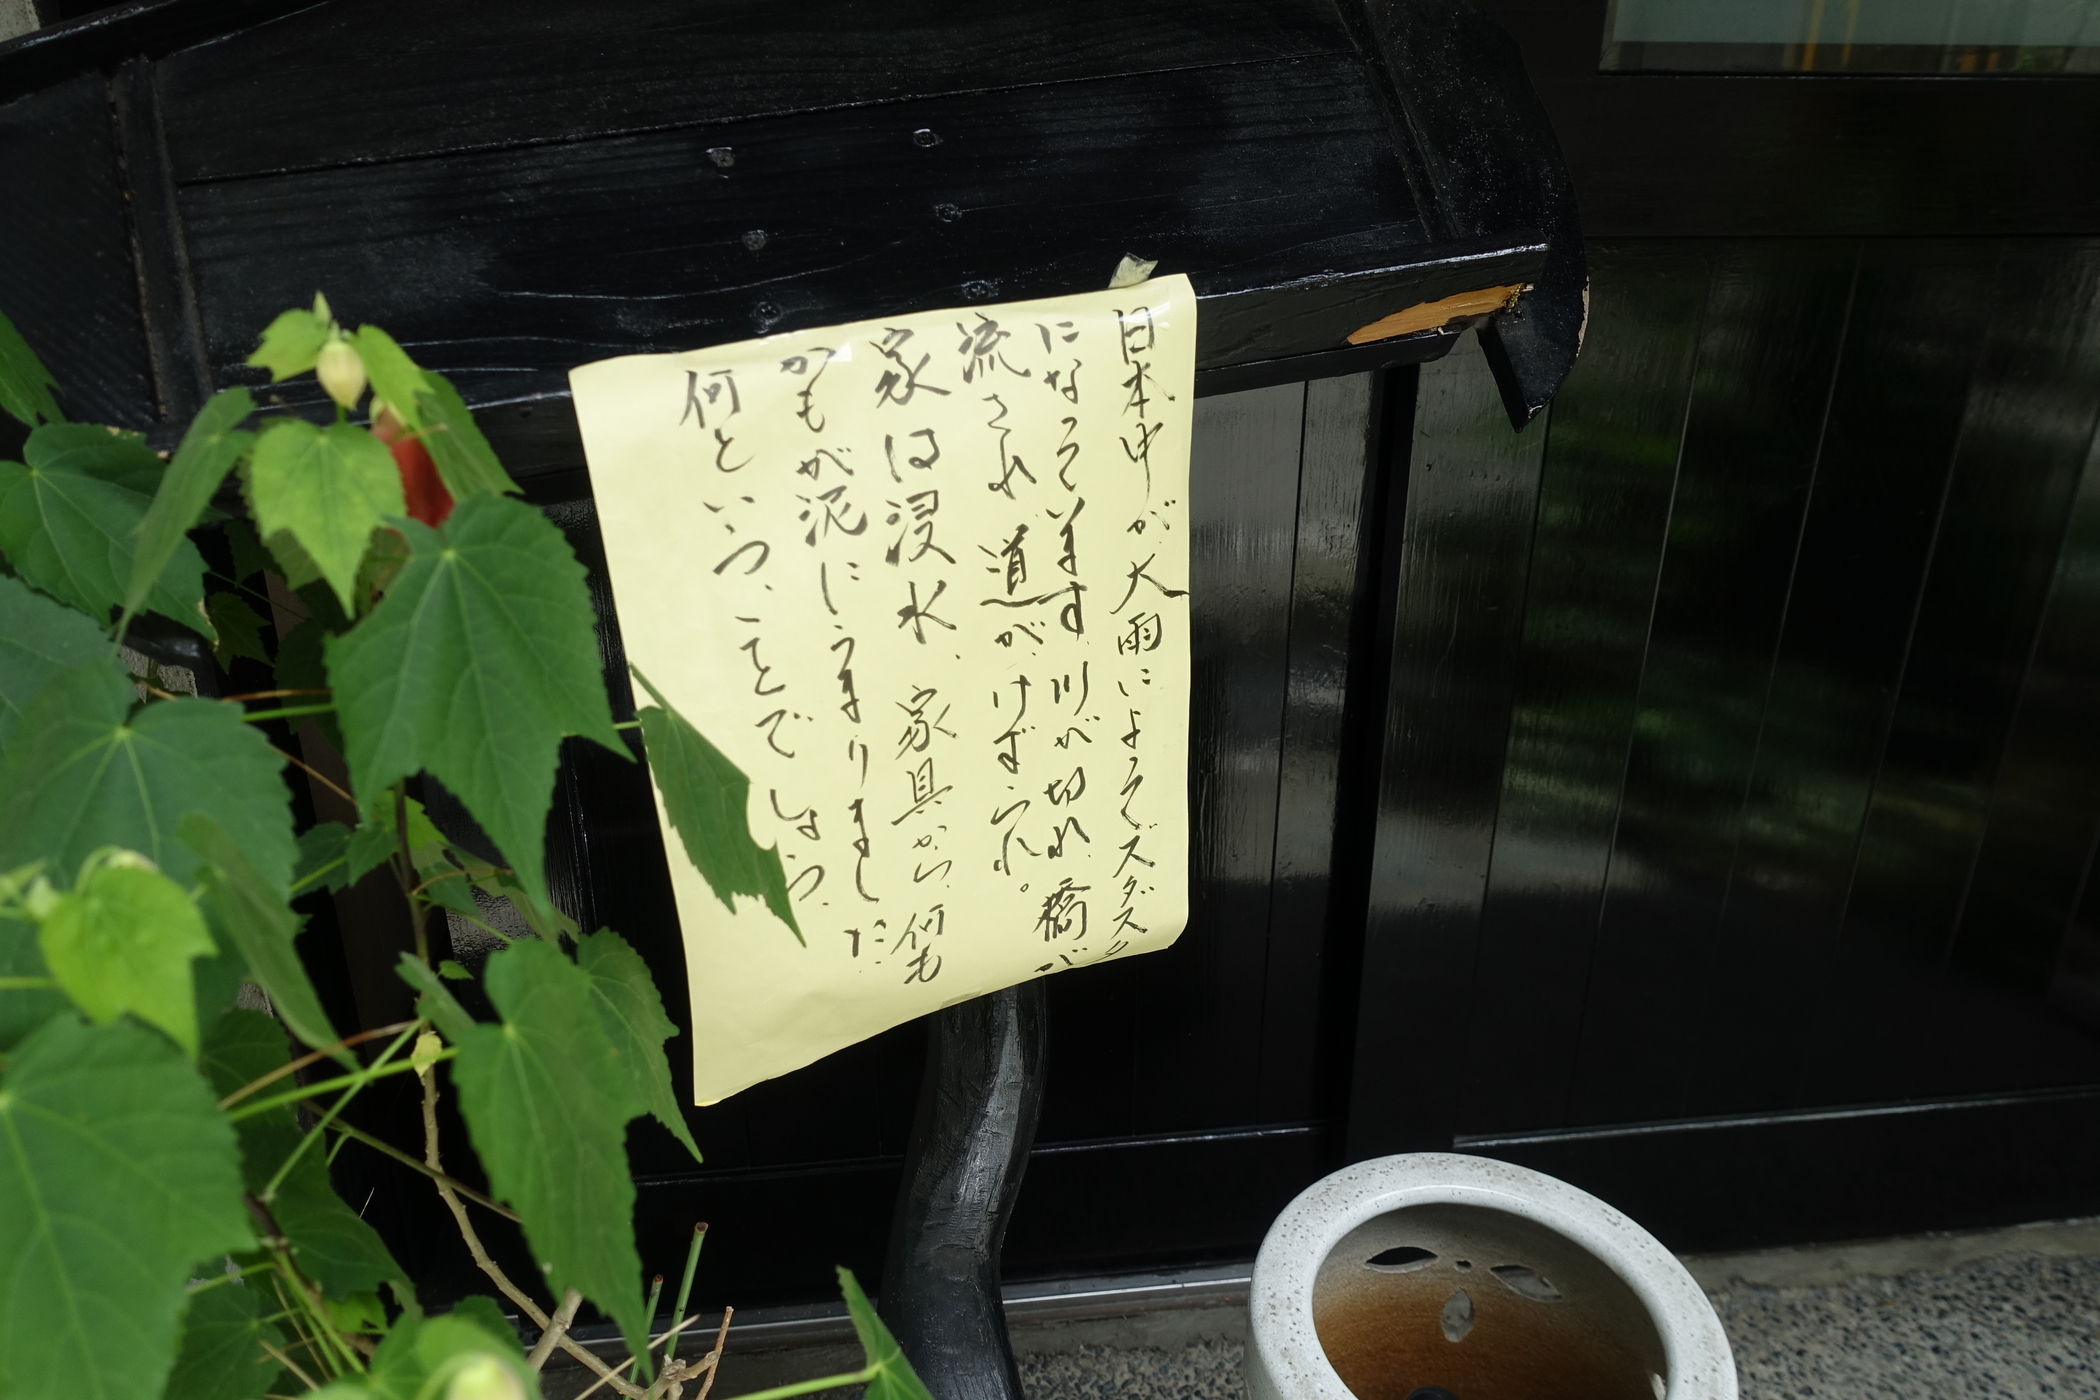 日本中が大雨によってズタズタ
になっています 川が切れ 橋が
流され 道がけずられ。
家は浸水、家具から、何も
かもが泥にうまりました
何という、ことでしょう、